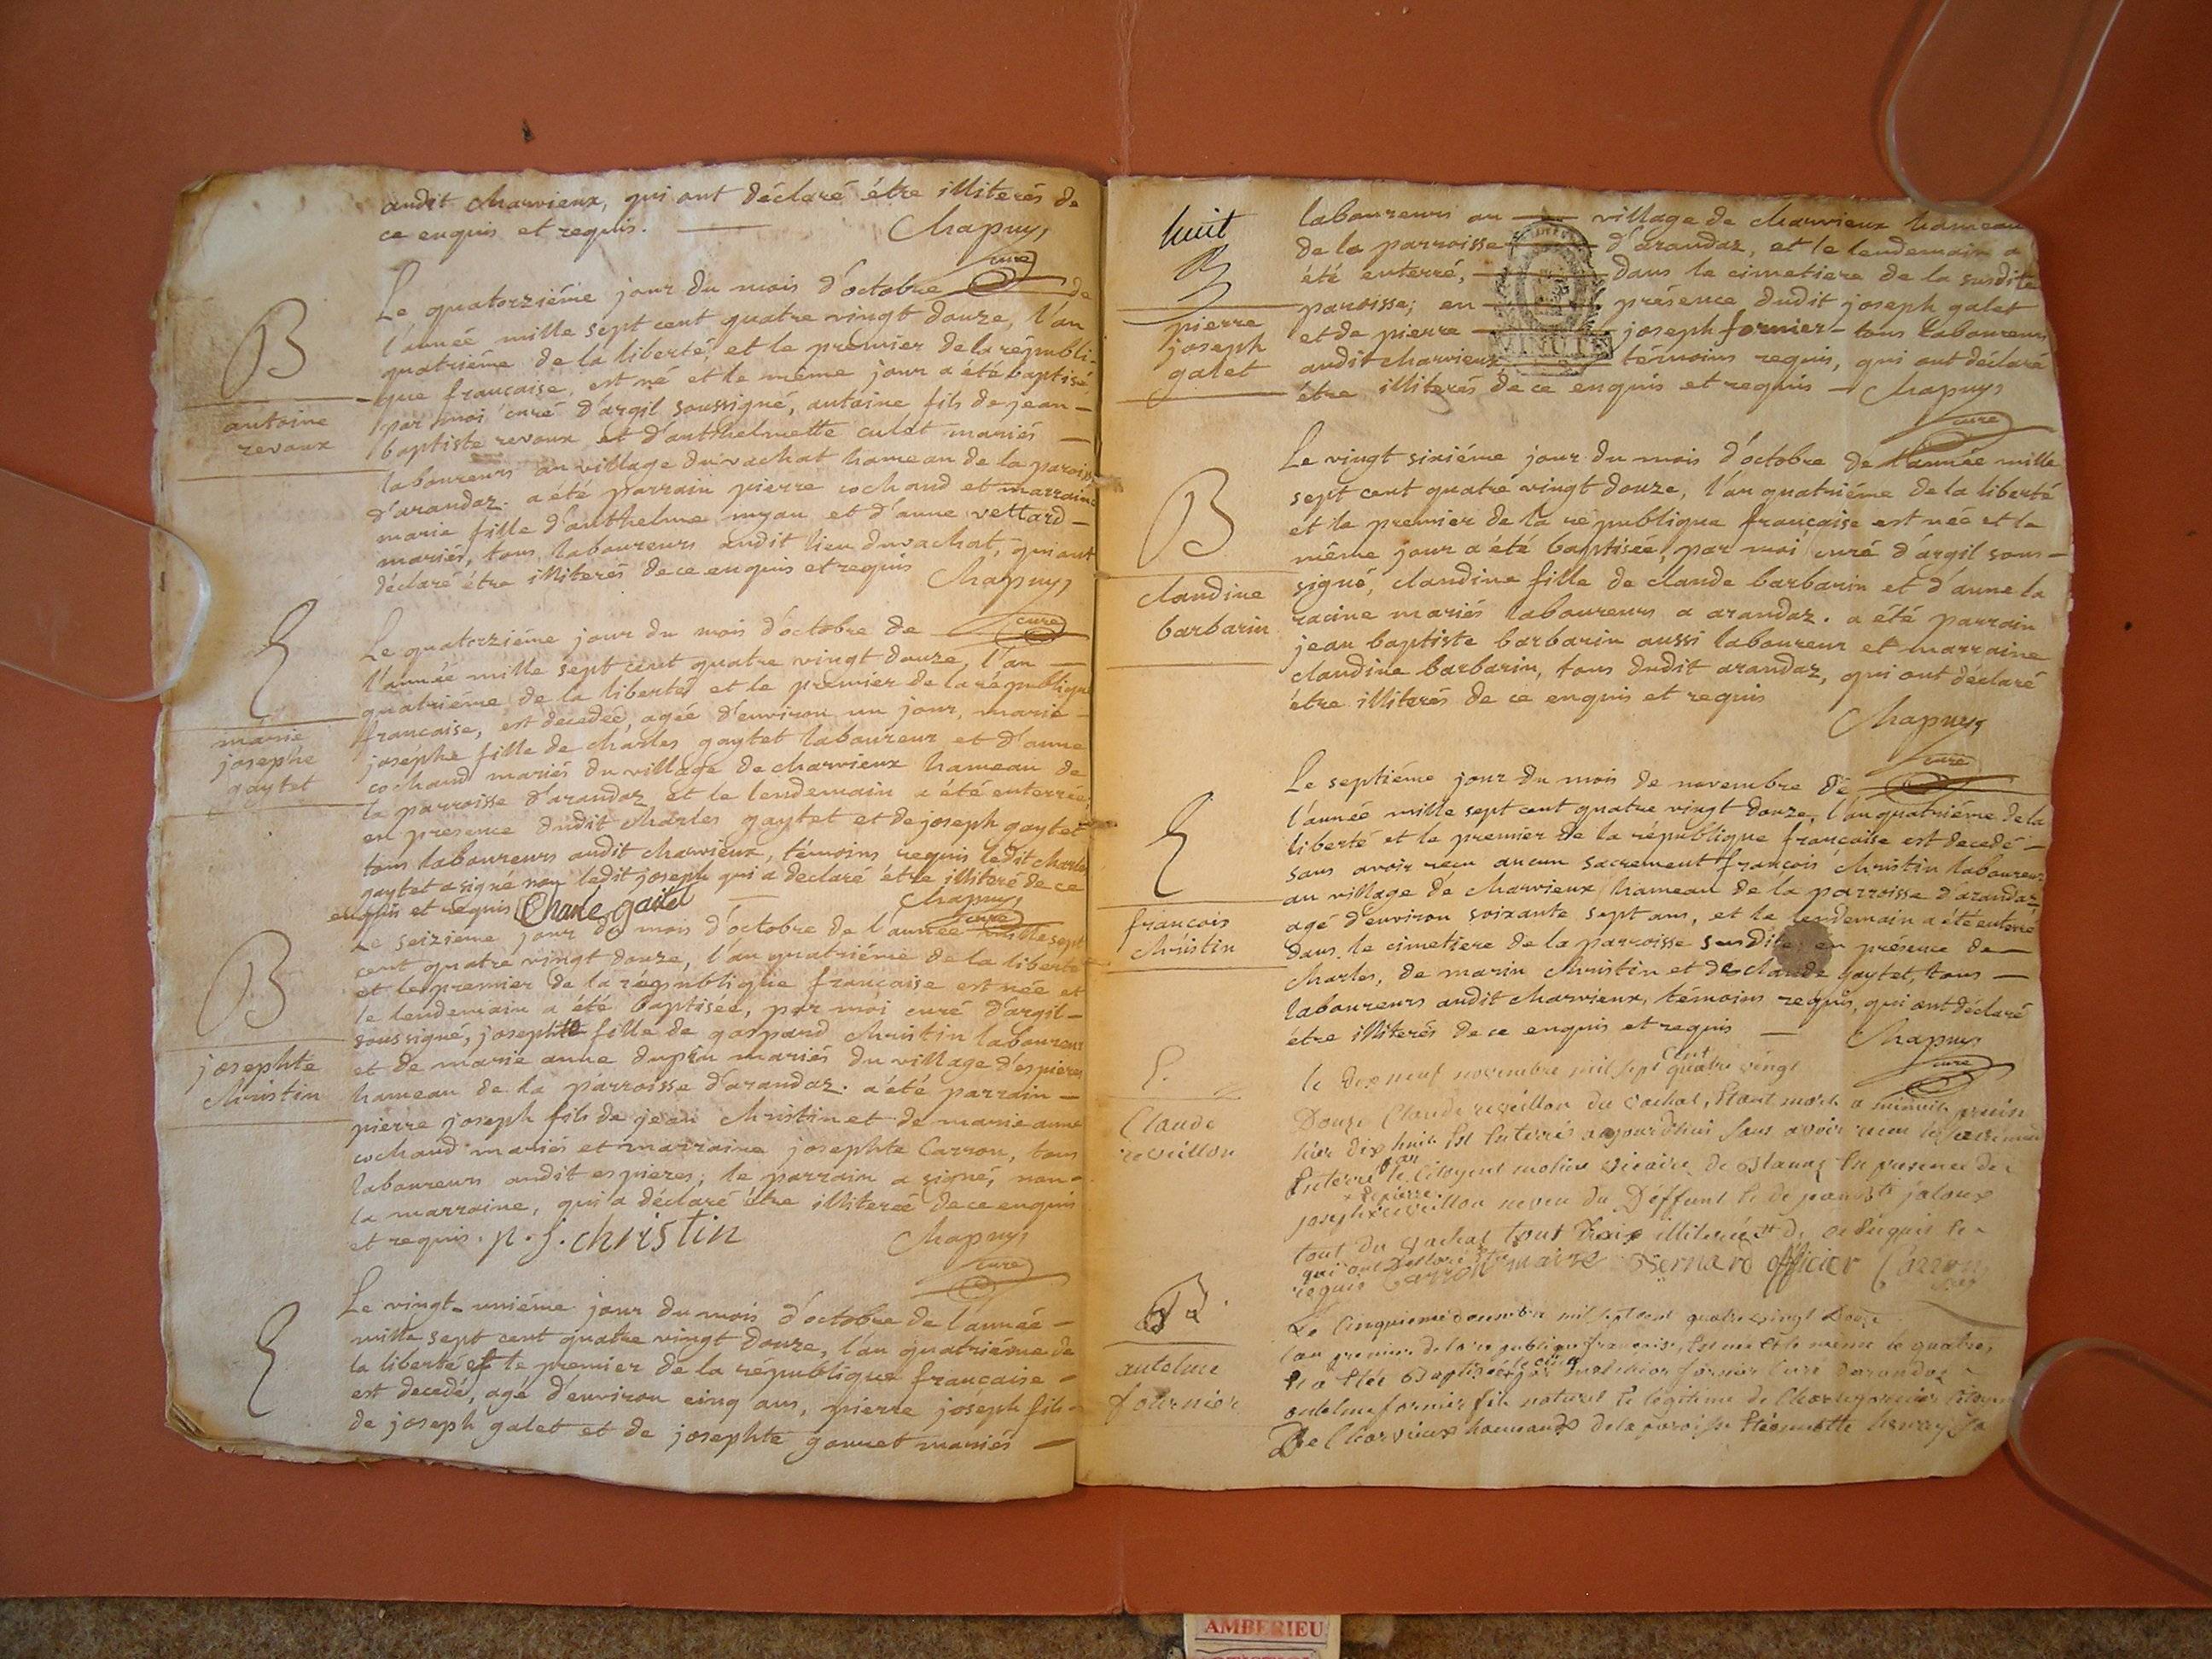 audit charvieux, qui ont déclaré être illiterés de
ce enquis et requis. Chapuy,
curé
Le quatorziéme jour du mois d'octobre de
l'année mille sept cent quatre vingt douze, l'an
quatriéme de la liberté, et le premier de la républi-
que française, est né et le même jour a été baptisé,
par moi curé d'argil soussigné, antoine fils de jean-
baptiste revoux et d'anthelmette culet mariés
laboureurs au village du vachat hameau de la paroisse
d'arandaz. a été parrain pierre cochaud et marraine
marie fille d'anthelme myan et d'anne vettard
mariés, tous laboureurs audit lieu du vachat, qui ont
déclaré être illiterés de ce enquis et requis Chapuy,
curé
B
antoine
revoux
Le quatorziéme jour du mois d'octobre de
l'année mille sept cent quatre vingt douze, l'an
quatriéme de la liberté et le premier de la république
française, est decedée, agée d'environ un jour, marie
josephe fille de charles gaytet laboureur et d'anne
cochaud mariés du village de charvieux hameau de
la parroisse d'arandaz et le lendemain a été enterrée,
en presence dudit charles gaytet et de joseph gaytet
tous laboureurs audit charvieux, témoins requis ledit charles
gaytet a signé non ledit joseph qui a declaré être illiteré de ce
enquis et requis Charle gaitet Chapuy,
curé
E
marie
josephe
gaytet
Le seizieme jour du mois d'octobre de l'année mille sept
cent quatre vingt douze, l'an quatriéme de la liberté
et le premier de la république française est née et
le lendemain a été baptisée, par moi curé d'argil
soussigné, josephte fille de gaspard christin laboureur
et de marie anne dupin mariés du village d'espieres
hameau de la parroisse d'arandaz. a été parrain
pierre joseph fils de jean christin et de marie anne
cochaud mariés et marraine josephte Carron, tous
laboureurs audit espieres, le parrain a signé, non
la marraine, qui a déclaré être illiterée de ce enquis
et requis. p. j. christin Chapuy,
curé
B
josephte
christin
Le vingt-uniéme jour du mois d'octobre de l'année
mille sept cent quatre vingt douze, l'an quatriéme de
la liberté et le premier de la république française
est decedé, agé d'environ cinq ans, pierre joseph fils
de joseph galet et de josephte gonnet mariés
E
huit
laboureurs au village de charvieux hameau
de la parroisse d'arandaz, et le lendemain a
été enterré, dans le cimetiere de la susdite
paroisse; en présence dudit joseph galet
et de pierre joseph fornier tous laboureurs
audit charvieux, témoins requis, qui ont déclaré
être illiterés de ce enquis et requis Chapuys
curé
pierre
joseph
galet
Le vingt sixiéme jour du mois d'octobre de l'année mille
sept cent quatre vingt douze, l'an quatriéme de la liberté
et le premier de la république française est née et le
même jour a été baptisée, par moi curé d'argil sous-
signé, claudine fille de claude barbarin et d'anne la
racine mariés laboureurs a arandaz. a été parrain
jean baptiste barbarin aussi laboureur et marraine
claudine barbarin, tous dudit arandaz, qui ont déclaré
être illiterés de ce enquis et requis
Chapuys
curé
B
claudine
barbarin
Le septiéme jour du mois de novembre de
l'année mille sept cent quatre vingt douze, l'an quatriéme de la
liberté et le premier de la république française est decedé
sans avoir reçu aucun sacrement françois christin laboureur
au village de charvieux hameau de la parroisse d'arandaz
agé d'environ soixante sept ans, et le lendemain a été enterré
dans le cimetiere de la parroisse susdite en présence de
charles, de marin christin et de claude gaytet, tous
laboureurs audit charvieux, témoins requis, qui ont déclaré
être illiterés de ce enquis et requis Chapuys
curé
E
francois
christin
le dix neuf novembre mil sept cent quatre vingt
Douze Claude reveillon du vachat, étant mort a minuit
hier dix huit Est Enterré aujourdhui sans avoir recu les sacremens
Enterré par le Citoyent vicaire de En presence de
joseph & pierre reveillon neveu du Deffunt Et de jaloux
tout du vachat tout trois illiteré
qui ont Declaré Enquis Et
requis Carron maire Bernard officier Carron
E.
Claude
reveillon
Le Cinquieme decembre mil sept cent quatre vingt Douze
l'an premier de la republique françoise, Est né Et le meme
Et a Etée Baptisée par fornier Curé Darandaz
antelme fornier fils naturel Et legitime de
De Charvieux hameaux de la paroisse
B
antelme
fournier
AMBERIEU